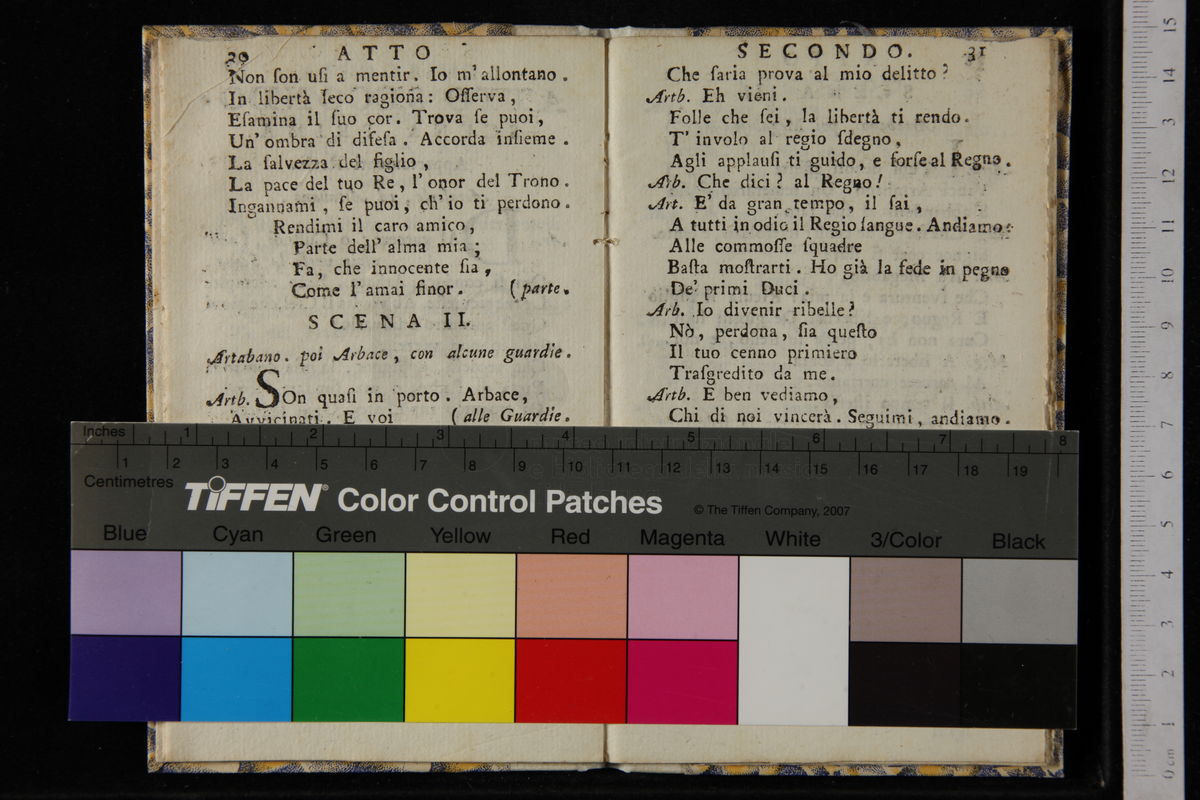 30 ATTO
Non ſon uſi a mentir. Io m'allontano.
In libertà ſeco ragiona: Oſſerva,
Eſamina il ſuo cor. Trova ſe puoi,
Un'ombra di difeſa. Accorda inſieme.
La ſalvezza del figlio,
La pace del tuo Re, l'onor del Trono.
Ingannami, ſe puoi, ch'io ti perdono.
Rendimi il caro amico,
Parte dell'alma mia;
Fa, che innocente ſia,
Come l'amai finor. (parte.
SCENA II.
Artabano. poi Arbace, con alcune guardie.
Artb. SOn quaſi in porto. Arbace,
Avvicinati. E voi (alle Guardie.
SECONDO. 31
Che ſaria prova al mio delitto?
Artb. Eh vieni.
Folle che ſei, la libertà ti rendo.
T'involo al regio ſdegno,
Agli applauſi ti guido, e forſe al Regno.
Arb. Che dici? al Regno!
Art. E' da gran tempo, il ſai,
A tutti in odio il Regio ſangue. Andiamo:
Alle commoſſe ſquadre
Baſta moſtrarti. Ho già la fede in pegno
De' primi Duci.
Arb. Io divenir ribelle?
Nò, perdona, ſia queſto
Il tuo cenno primiero
Traſgredito da me.
Artb. E ben vediamo,
Chi di noi vincerà. Seguimi, andiamo.
Inches 1 2 3 4 5 6 7 8
1 2 3 4 5 6 7 8 9 10 11 12 13 14 15 16 17 18 19
Centimetres
TIFFEN® Color Control Patches © The Tiffen Company, 2007
Blue Cyan Green Yellow Red Magenta White 3/Color Black
15
14
3
12
11
10
9
8
7
6
5
4
3
2
1
0 cm